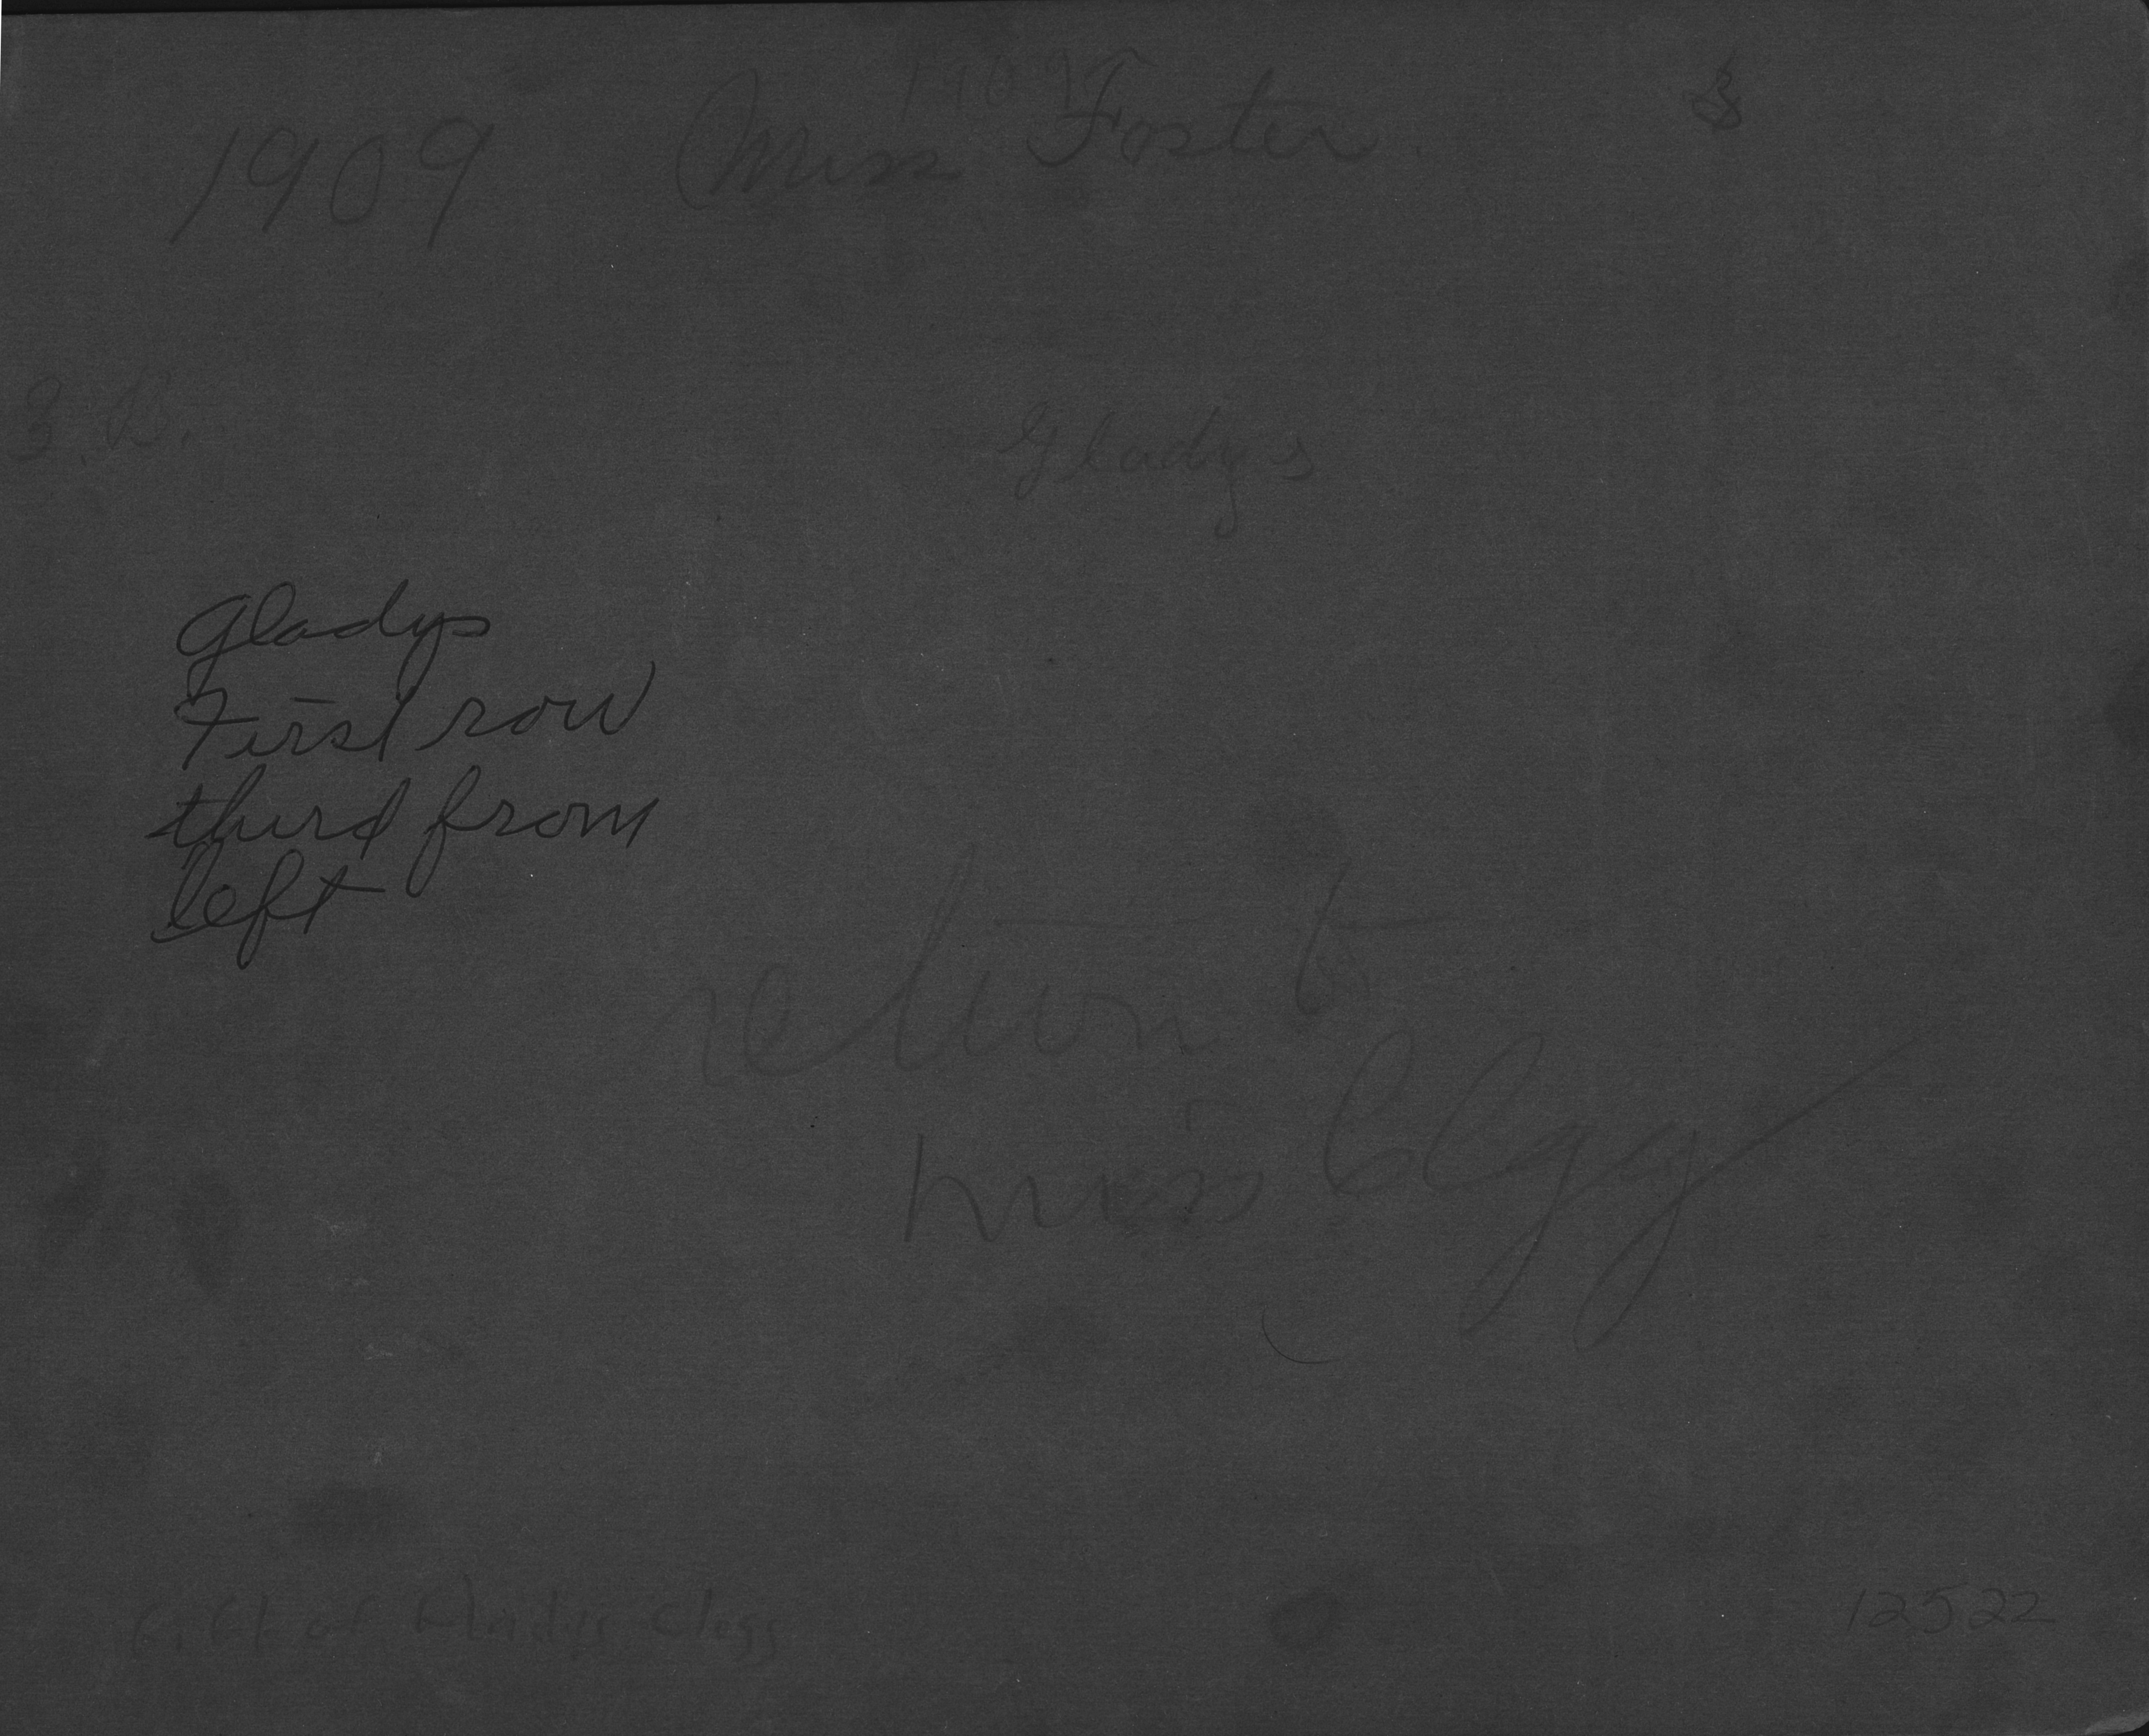 1909
1909 Miss Foster.
3 B.
Gladys
Gladys
First row
third from
left
return to
miss Clegg
Gift of Gladys Clegg
12522